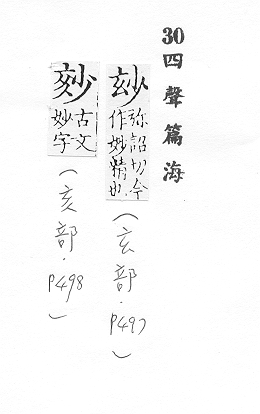 30四聲篇海
玅
弥詔切今
作妙精也
（玄部．P497）
𡥝古文
妙字
（亥部．P498）